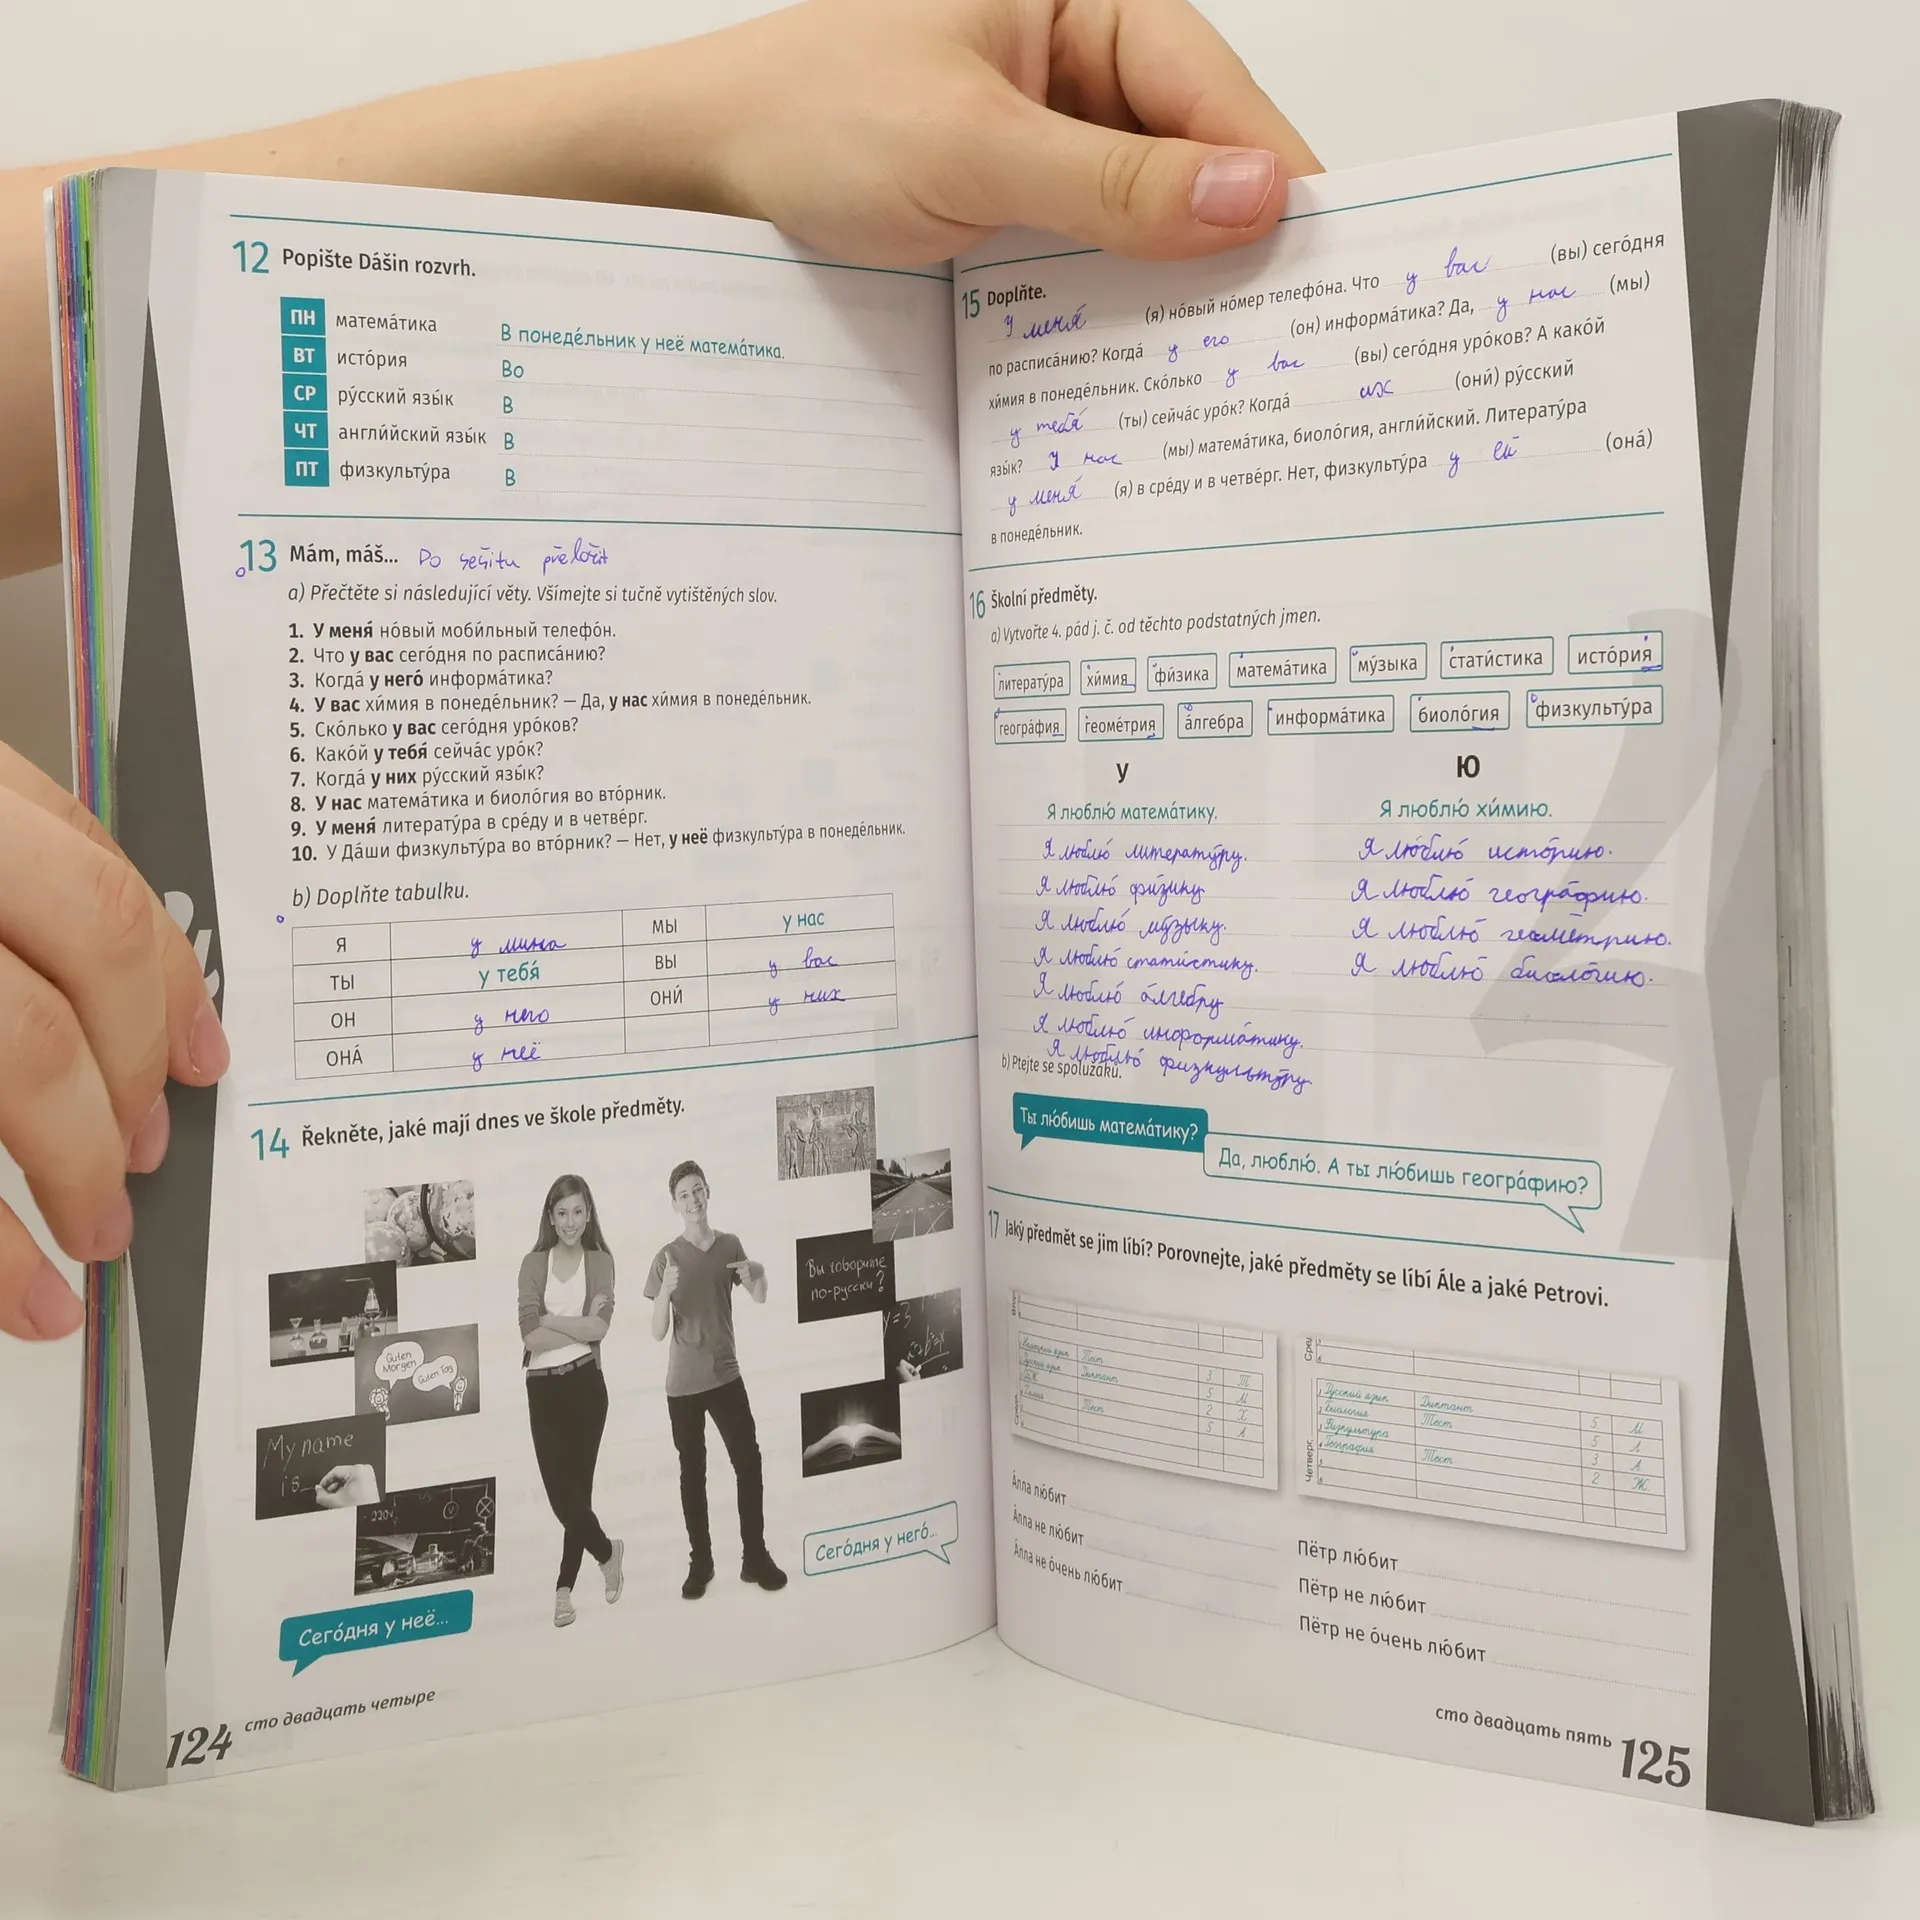 12 Popište Dášin rozvrh.
ПН матема́тика В понеде́льник у неё матема́тика.
ВТ исто́рия Во
СР ру́сский язы́к В
ЧТ англи́йский язы́к В
ПТ физкульту́ра В
13 Mám, máš... Do sešitu přeložit
a) Přečtěte si následující věty. Všímejte si tučně vytištěných slov.
1. У меня́ но́вый моби́льный телефо́н.
2. Что у вас сего́дня по расписа́нию?
3. Когда́ у него́ информа́тика?
4. У вас хи́мия в понеде́льник? — Да, у нас хи́мия в понеде́льник.
5. Ско́лько у вас сего́дня уро́ков?
6. Како́й у тебя́ сейча́с уро́к?
7. Когда́ у них ру́сский язы́к?
8. У нас матема́тика и биоло́гия во вто́рник.
9. У меня́ литерату́ра в сре́ду и в четве́рг.
10. У Да́ши физкульту́ра во вто́рник? — Нет, у неё физкульту́ра в понеде́льник.
b) Doplňte tabulku.
Я у мина МЫ у нас
ТЫ у тебя́ ВЫ у вас
ОН у него ОНИ́ у них
ОНА́ у неё
14 Řekněte, jaké mají dnes ve škole předměty.
Guten Morgen
Guten Tag
My name is
220v
V
Вы говорите по-русски?
Сего́дня у неё...
Сего́дня у него́...
124 сто двадцать четыре
15 Doplňte.
У меня́ (я) но́вый но́мер телефо́на. Что у вас (вы) сего́дня
по расписа́нию? Когда́ у его (он) информа́тика? Да, у нас (мы)
хи́мия в понеде́льник. Ско́лько у вас (вы) сего́дня уро́ков? А како́й
у тебя́ (ты) сейча́с уро́к? Когда́ их (они́) ру́сский
язы́к? У нас (мы) матема́тика, биоло́гия, англи́йский. Литерату́ра
у меня́ (я) в сре́ду и в четве́рг. Нет, физкульту́ра у ей (она́)
в понеде́льник.
16 Školní předměty.
a) Vytvořte 4. pád j. č. od těchto podstatných jmen.
литерату́ра хи́мия фи́зика матема́тика му́зыка стати́стика исто́рия
геогра́фия геоме́трия а́лгебра информа́тика биоло́гия физкульту́ра
у Ю
Я люблю́ матема́тику. Я люблю́ хи́мию.
Я люблю́ литерату́ру. Я люблю́ исто́рию.
Я люблю́ фи́зику Я люблю́ геогра́фию.
Я люблю́ му́зыку. Я люблю́ геоме́трию.
Я люблю́ стати́стику. Я люблю́ биоло́гию.
Я люблю́ а́лгебру
Я люблю́ информа́тику.
Я люблю́ физкульту́ру.
b) Ptejte se spolužáků.
Ты лю́бишь матема́тику?
Да, люблю́. А ты лю́бишь геогра́фию?
17 Jaký předmět se jim líbí? Porovnejte, jaké předměty se líbí Ále a jaké Petrovi.
Тест 3
Диктант 5
Тест 2
5
Русский язык Диктант 5
Биология Тест 5
Физкультура 3
География Тест 2
Четверг
А́лла лю́бит
А́лла не лю́бит
А́лла не о́чень лю́бит
Пётр лю́бит
Пётр не лю́бит
Пётр не о́чень лю́бит
сто двадцать пять 125